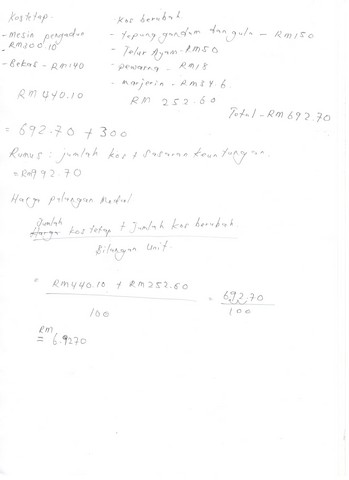 Kos tetap. Kos berubah.
- Mesin pengadun - tepung gandum dan gula - RM150
- RM300.10 - Telur Ayam - RM50
- Bekas - RM140 - pewarna - RM18
- marjerin - RM34.6
RM440.10 RM 252.60
Total - RM 692.70
= 692.70 + 300
Rumus : jumlah kos + sasaran keuntungan.
= RM992.70
Harga pulangan Modal
Jumlah
Harga kos tetap + Jumlah kos berubah.
Bilangan Unit.
= RM440.10 + RM252.60 = 692.70
100 100
RM
= 6.9270